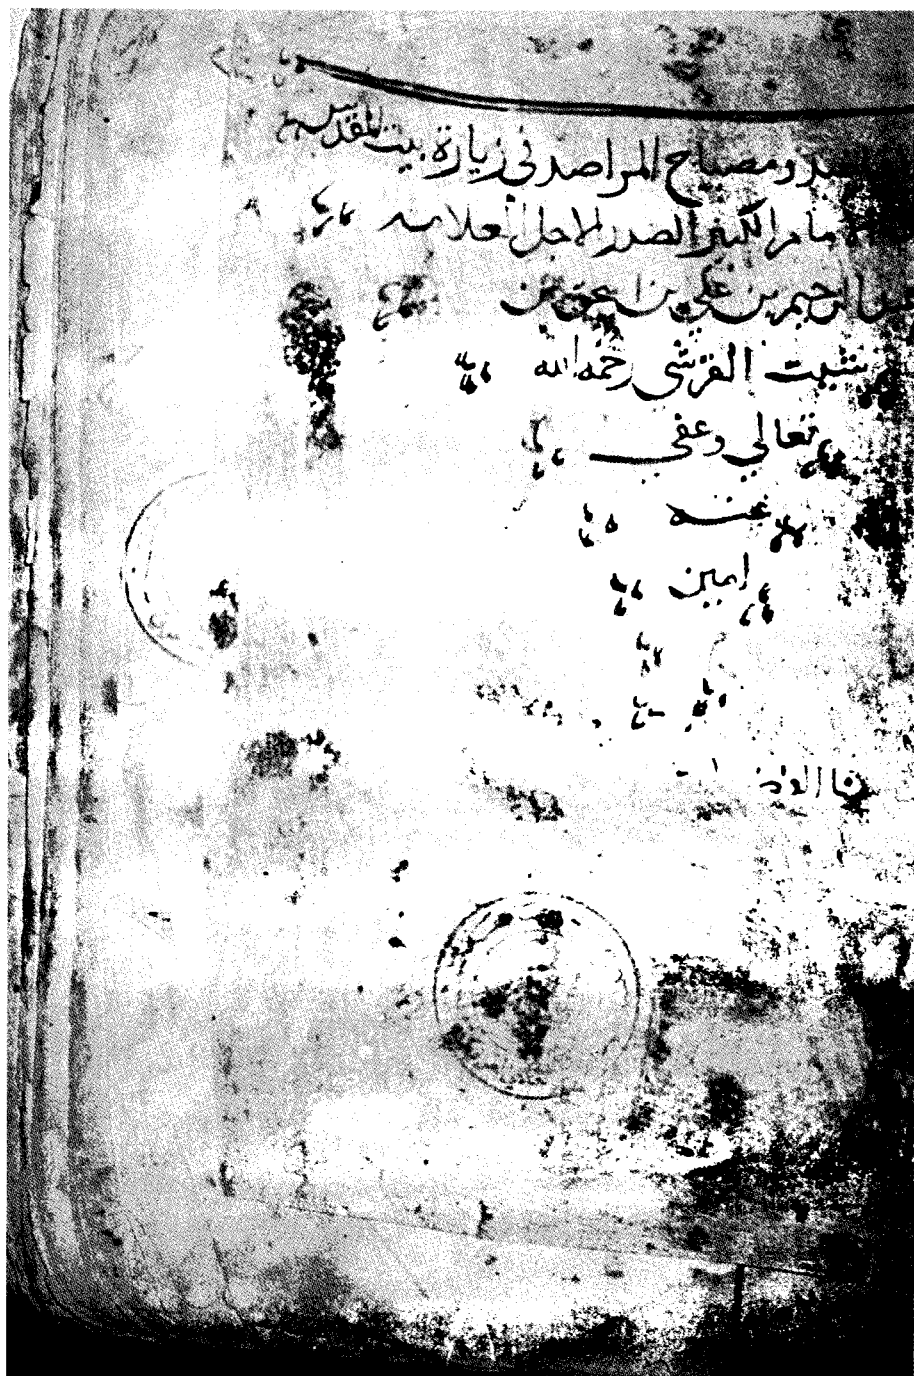 ومصباح المراصد في زيارة بيت المقدس
الكبير الصدر الاجل العلامه
الرحيم بن علي بن اسحق بن
شيت القرشي رحمه الله
تعالي وعفي
عنه
امين